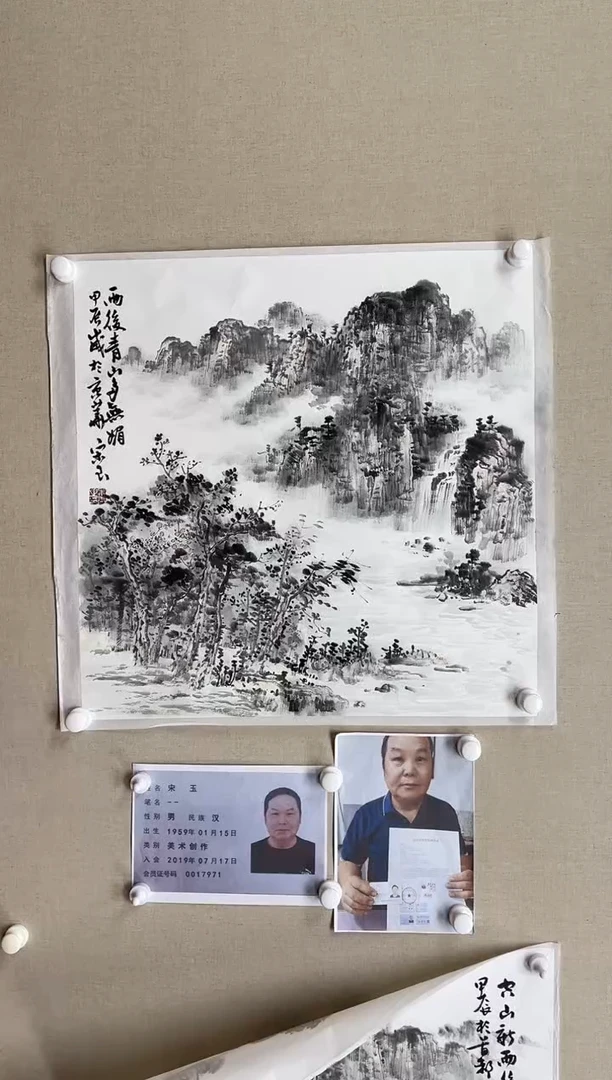 雨後青山多無媚
甲辰歲於京華 宋玉
姓名 宋 玉
笔名 --
性别 男 民族 汉
出生 1959年01月15日
类别 美术创作
入会 2019年07月17日
会员证号码 0017971
空山新雨後
甲辰於首都